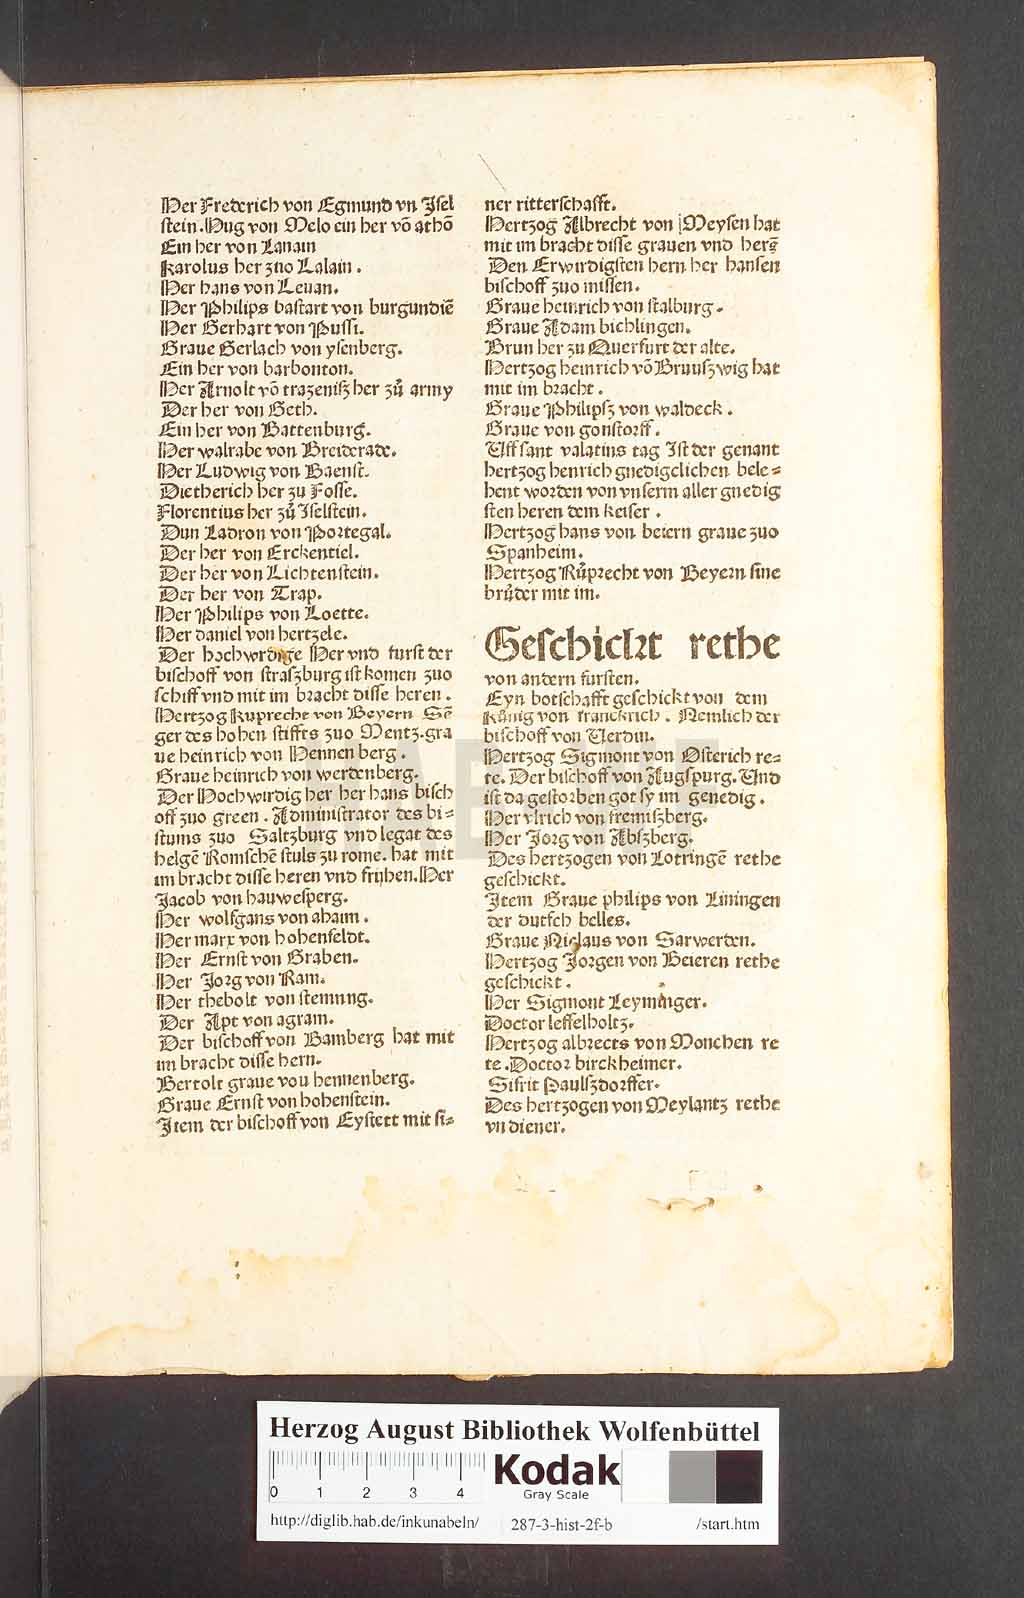 Her Frederich von Egmund vn Jsel
stein. Hug von Melo ein her võ athõ
Ein her von Lanain
Karolus her zuo Lalain.
Her hans von Leuan.
Her Philips bastart von burgundiẽ
Her Gerhart von Pussi.
Graue Gerlach von ysenberg.
Ein her von barbonton.
Her Arnolt võ trazenisz her zů army
Der her von Geth.
Ein her von Battenburg.
Her walrabe von Breiderade.
Her Ludwig von Baenst.
Dietherich her zu Fosse.
Florentius her zů Jselstein.
Dun Ladron von Portegal.
Der her von Erckentiel.
Der her von Lichtenstein.
Der her von Trap.
Her Philips von Loette.
Her daniel von hertzele.
Der hochwrdige Her vnd furst der
bischoff von straszburg ist komen zuo
schiff vnd mit im bracht disse heren.
Hertzog Ruprecht von Beyern Sẽ
ger des hohen stiffts zuo Mentz. gra
ue heinrich von Hennen berg.
Graue heinrich von werdenberg.
Der Hochwirdig her her hans bisch
off zuo green. Administrator des bi=
stums zuo Saltzburg vnd legat des
helgẽ Romschẽ stuls zu rome. hat mit
im bracht disse heren vnd frijhen. Her
Jacob von hauwesperg.
Her wolfgans von ahaim.
Her marx von hohenfeldt.
Her Ernst von Graben.
Her Jorg von Ram.
Her thebolt von stemung.
Der Apt von agram.
Der bischoff von Bamberg hat mit
im bracht disse hern.
Bertolt graue vou hennenberg.
Graue Ernst von hohenstein.
Jtem der bischoff von Eystett mit si=
ner ritterschafft.
Hertzog Albrecht von Meysen hat
mit im bracht disse grauen vnd herꝛ̃
Den Erwirdigsten hern her hansen
bischoff zuo missen.
Graue heinrich von stalburg.
Graue Adam bichlingen.
Brun her zu Querfurt der alte.
Hertzog heinrich võ Bruuszwig hat
mit im bracht.
Graue Philipsz von waldeck.
Graue von gonstorff.
Vff sant valatins tag Jst der genant
hertzog henrich gnedigclichen bele=
hent worden von vnserm aller gnedig
sten heren dem keiser.
Hertzog hans von beiern graue zuo
Spanheim.
Hertzog Růprecht von Beyern sine
brůder mit im.
Geschickt rethe
von andern fursten.
Eyn botschafft geschickt von dem
Kũnig von franckrich. Nemlich der
bischoff von Verdun.
Hertzog Sigmont von Osterich re=
te. Der bischoff von Augspurg. Vnd
ist da gestorben got sy im genedig.
Her vlrich von fremiszberg.
Her Jorg von Abszberg.
Des hertzogen von Lotringẽ rethe
geschickt.
Jtem Graue philips von Liningen
der dutsch belles.
Graue Niclaus von Sarwerden.
Hertzog Jorgen von Beieren rethe
geschickt.
Her Sigmont Leyminger.
Doctor leffelholtz.
Hertzog albrects von Monchen re
te. Doctor birckheimer.
Sifrit Paulszdorffer.
Des hertzogen von Meylantz rethe
vn diener.
HAB-WF
Herzog August Bibliothek Wolfenbüttel
0 1 2 3 4
Kodak
Gray Scale
http://diglib.hab.de/inkunabeln/ 287-3-hist-2f-b /start.htm